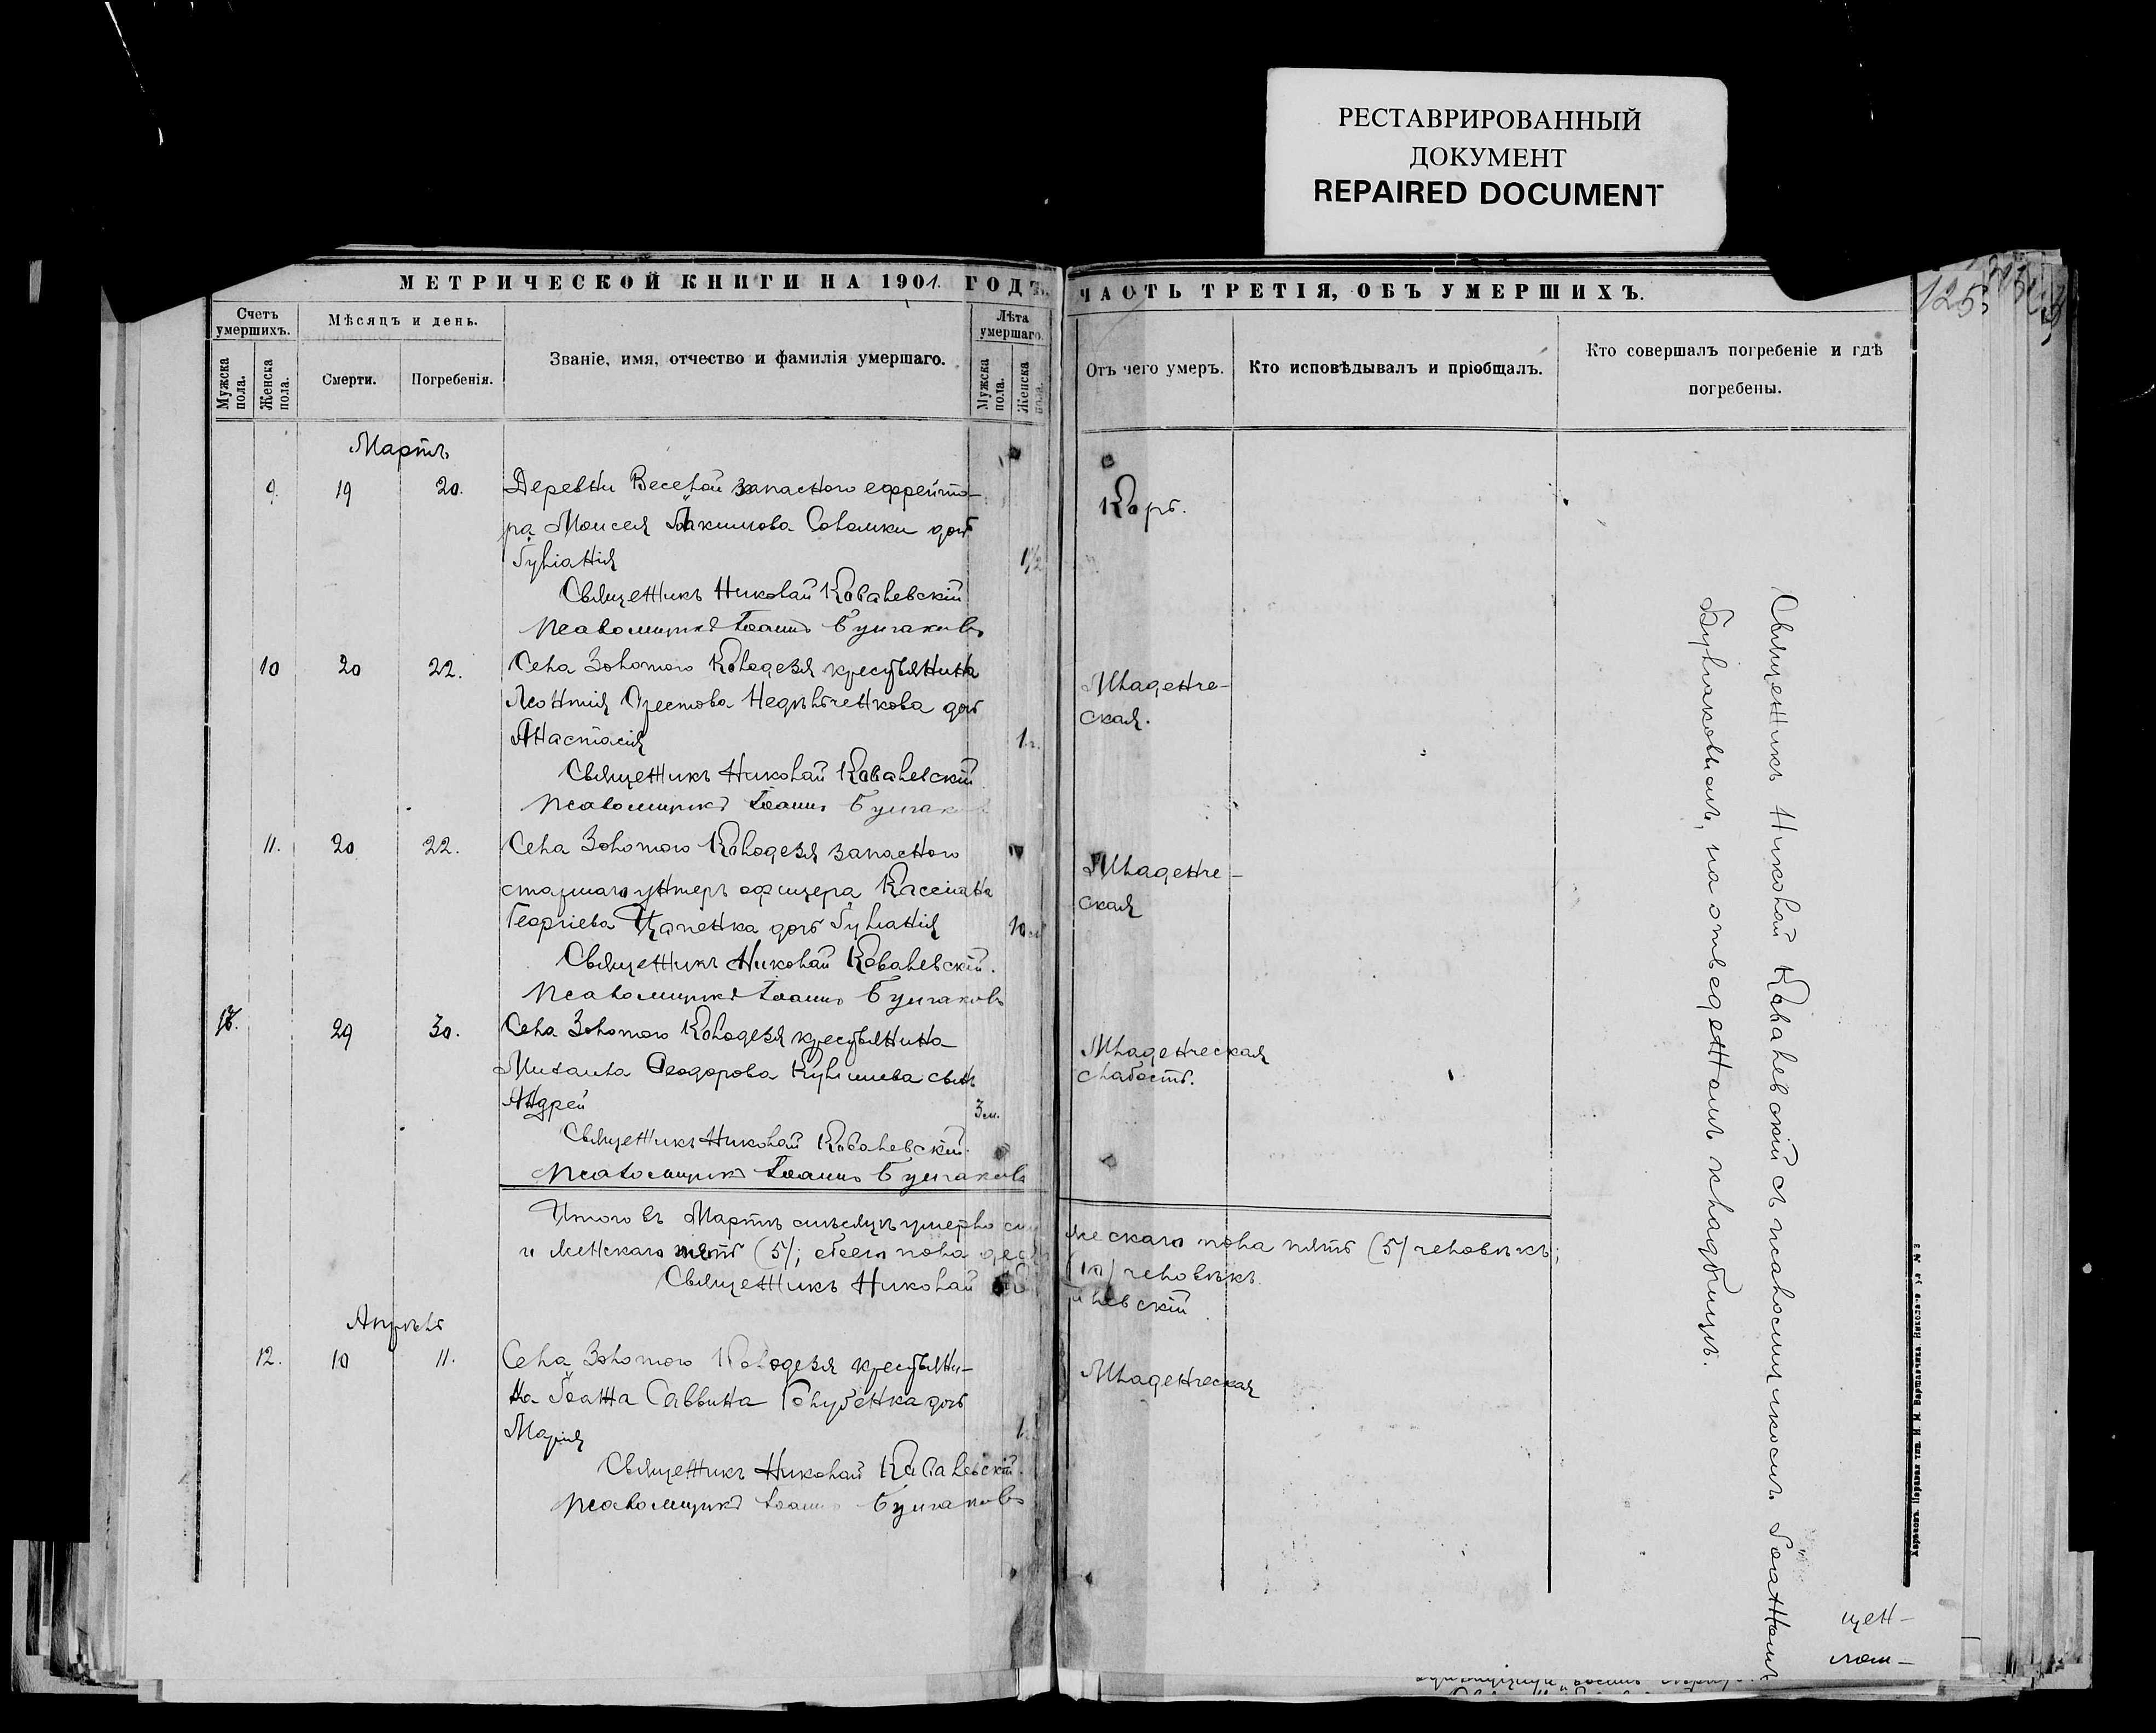 РЕСТАВРИРОВАННЫЙ
ДОКУМЕНТ
REPAIRED DOCUMENT
МЕТРИЧЕСКОЙ КНИГИ НА 1901. ГОДЪ,
Счетъ умершихъ.
Мужска пола.
Женска пола.
Мѣсяцъ и день.
Смерти.
Погребенія.
Званіе, имя, отчество и фамилія умершаго.
Лѣта умершаго.
Мужска пола.
Женска пола.
ЧАСТЬ ТРЕТІЯ, ОБЪ УМЕРШИХЪ.
125
Отъ чего умеръ.
Кто исповѣдывалъ и пріобщалъ.
Кто совершалъ погребеніе и гдѣ
погребены.
Мартъ
9. 19 20. Деревни Веселой запаснаго ефрейто-
ра Моисея Іакимова Соломки дочь
Іуліанія 1½
Корь.
Священникъ Николай Ковалевскій
Псаломщикъ Іоаннъ Булгаковъ
10 20 22. Села Золотого Колодезя крестьянина
Леонтія Орестова Недѣльченкова дочь
Анастасія 1 г.
Младенче-
ская.
Священникъ Николай Ковалевскій
Псаломщикъ Іоаннъ Булгаков
11. 20 22. Села Золотого Колодезя запаснаго
старшаго унтеръ офицера Кассіана
Георгіева Цапенка дочь Іуліанія 10 м
Младенче-
ская
Священникъ Николай Ковалевскій.
Псаломщикъ Іоаннъ Булгаковъ
29 30. Села Золотого Колодезя крестьянина
Михаила Ѳеодорова сынъ
Андрей 3 м.
Младенческая
слабость.
Священникъ Николай Ковалевскій.
Псаломщикъ Іоаннъ Булгаковъ
Итого въ Мартѣ мѣсяцѣ умерло му жескаго пола пять (5) человѣкъ;
и женскаго пять (5); обоего пола деся (10) человѣкъ.
Священникъ Николай Ко валевскій
Апрѣль
12. 10 11. Села Золотого Колодезя крестьяни-
на Іоанна Саввина Голубенка дочь
Марія
Младенческая
Священникъ Николай Ковалевскій.
Псаломщикъ Іоаннъ Булгаковъ
Священникъ Николай Ковалевскій съ псаломщикомъ Іоанномъ
Булгаковымъ, на отведенномъ кладбищѣ.
щен-
лом-